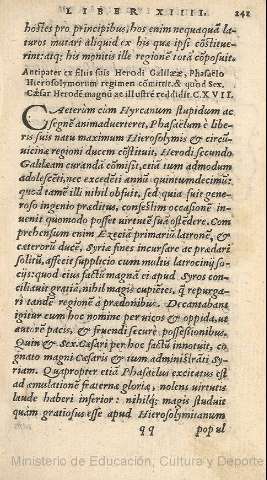 LIBER XIIII.
242
hostes pro principibus, hos enim nequaquã la-
turos mutari aliquid ex his quæ ipsi cõstitue-
rint: atq; his monitis ille regionẽ totã cõposuit.
Antipater ex filiis suis Herodi Galilææ, Phasaëlo
Hierosolymorum regimen cõmittit. & quod Sex.
Cæsar Herodẽ magnũ ac illustrẽ reddidit. C. XVII.
Cæterùm cùm Hyrcanum stupidum ac
segnẽ animaduerteret, Phasaëlum è libe-
ris suis natu maximum Hierosolymis & circũ-
uicinæ regioni ducem cõstituit, Herodi secundo
Galilæam curandã cõmisit, etiã tum admodum
adolescẽti, nec excedẽti annũ quintumdecimũ:
quod tamẽ illi nihil obfuit, sed quia fuit gene-
roso ingenio præditus, confestim occasionẽ in-
uenit quomodo posset virtutẽ suã ostẽdere. Com
prehensum enim Ezeciã primariũ latronẽ, &
cæterorũ ducẽ, Syriæ fines incursare ac prædari
solitũ, affecit supplicio cum multis latrocinij so-
cijs: quod eius factũ magnã ei apud Syros con-
ciliauit gratiã, nihil magis cupiẽtes, ꝗ̃ repurga-
ri tandẽ regionẽ à prædonibus. Decantabant
igitur eum hoc nomine per vicos & oppida, ut
autorẽ pacis, & fruendi securè possessionibus.
Quin & Sex. Cæsari per hoc factũ innotuit, co-
gnato magni Cæsaris & tum administrãti Sy-
riam. Quapropter etiã Phasaelus excitatus est
ad æmulationẽ fraternæ gloriæ, nolens virtutis
laude haberi inferior: nihilq; magis studuit
quàm gratiosus esse apud Hierosolymitanum
qq
popul
Ministerio de Educación, Cultura y Deporte